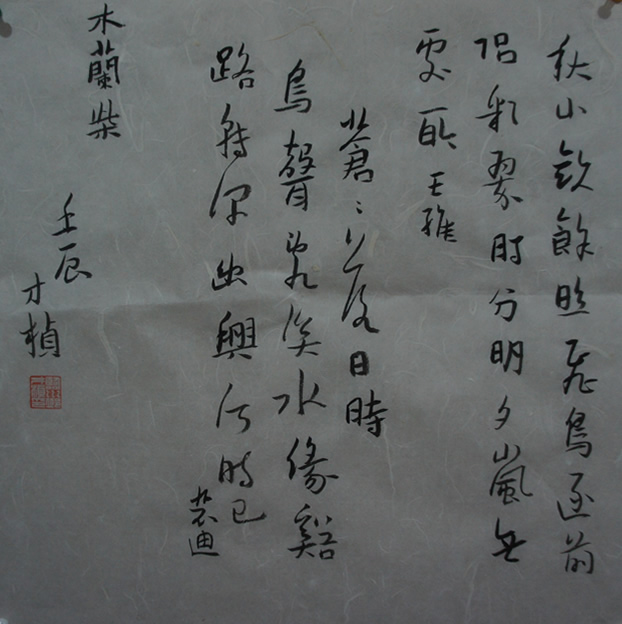 秋山斂餘照飛鳥逐前
侶彩翠時分明夕嵐無
處所王維
蒼〻落日時
鳥聲亂溪水緣谿
路轉深幽興何時已
裴迪
木蘭柴
壬辰
才楨